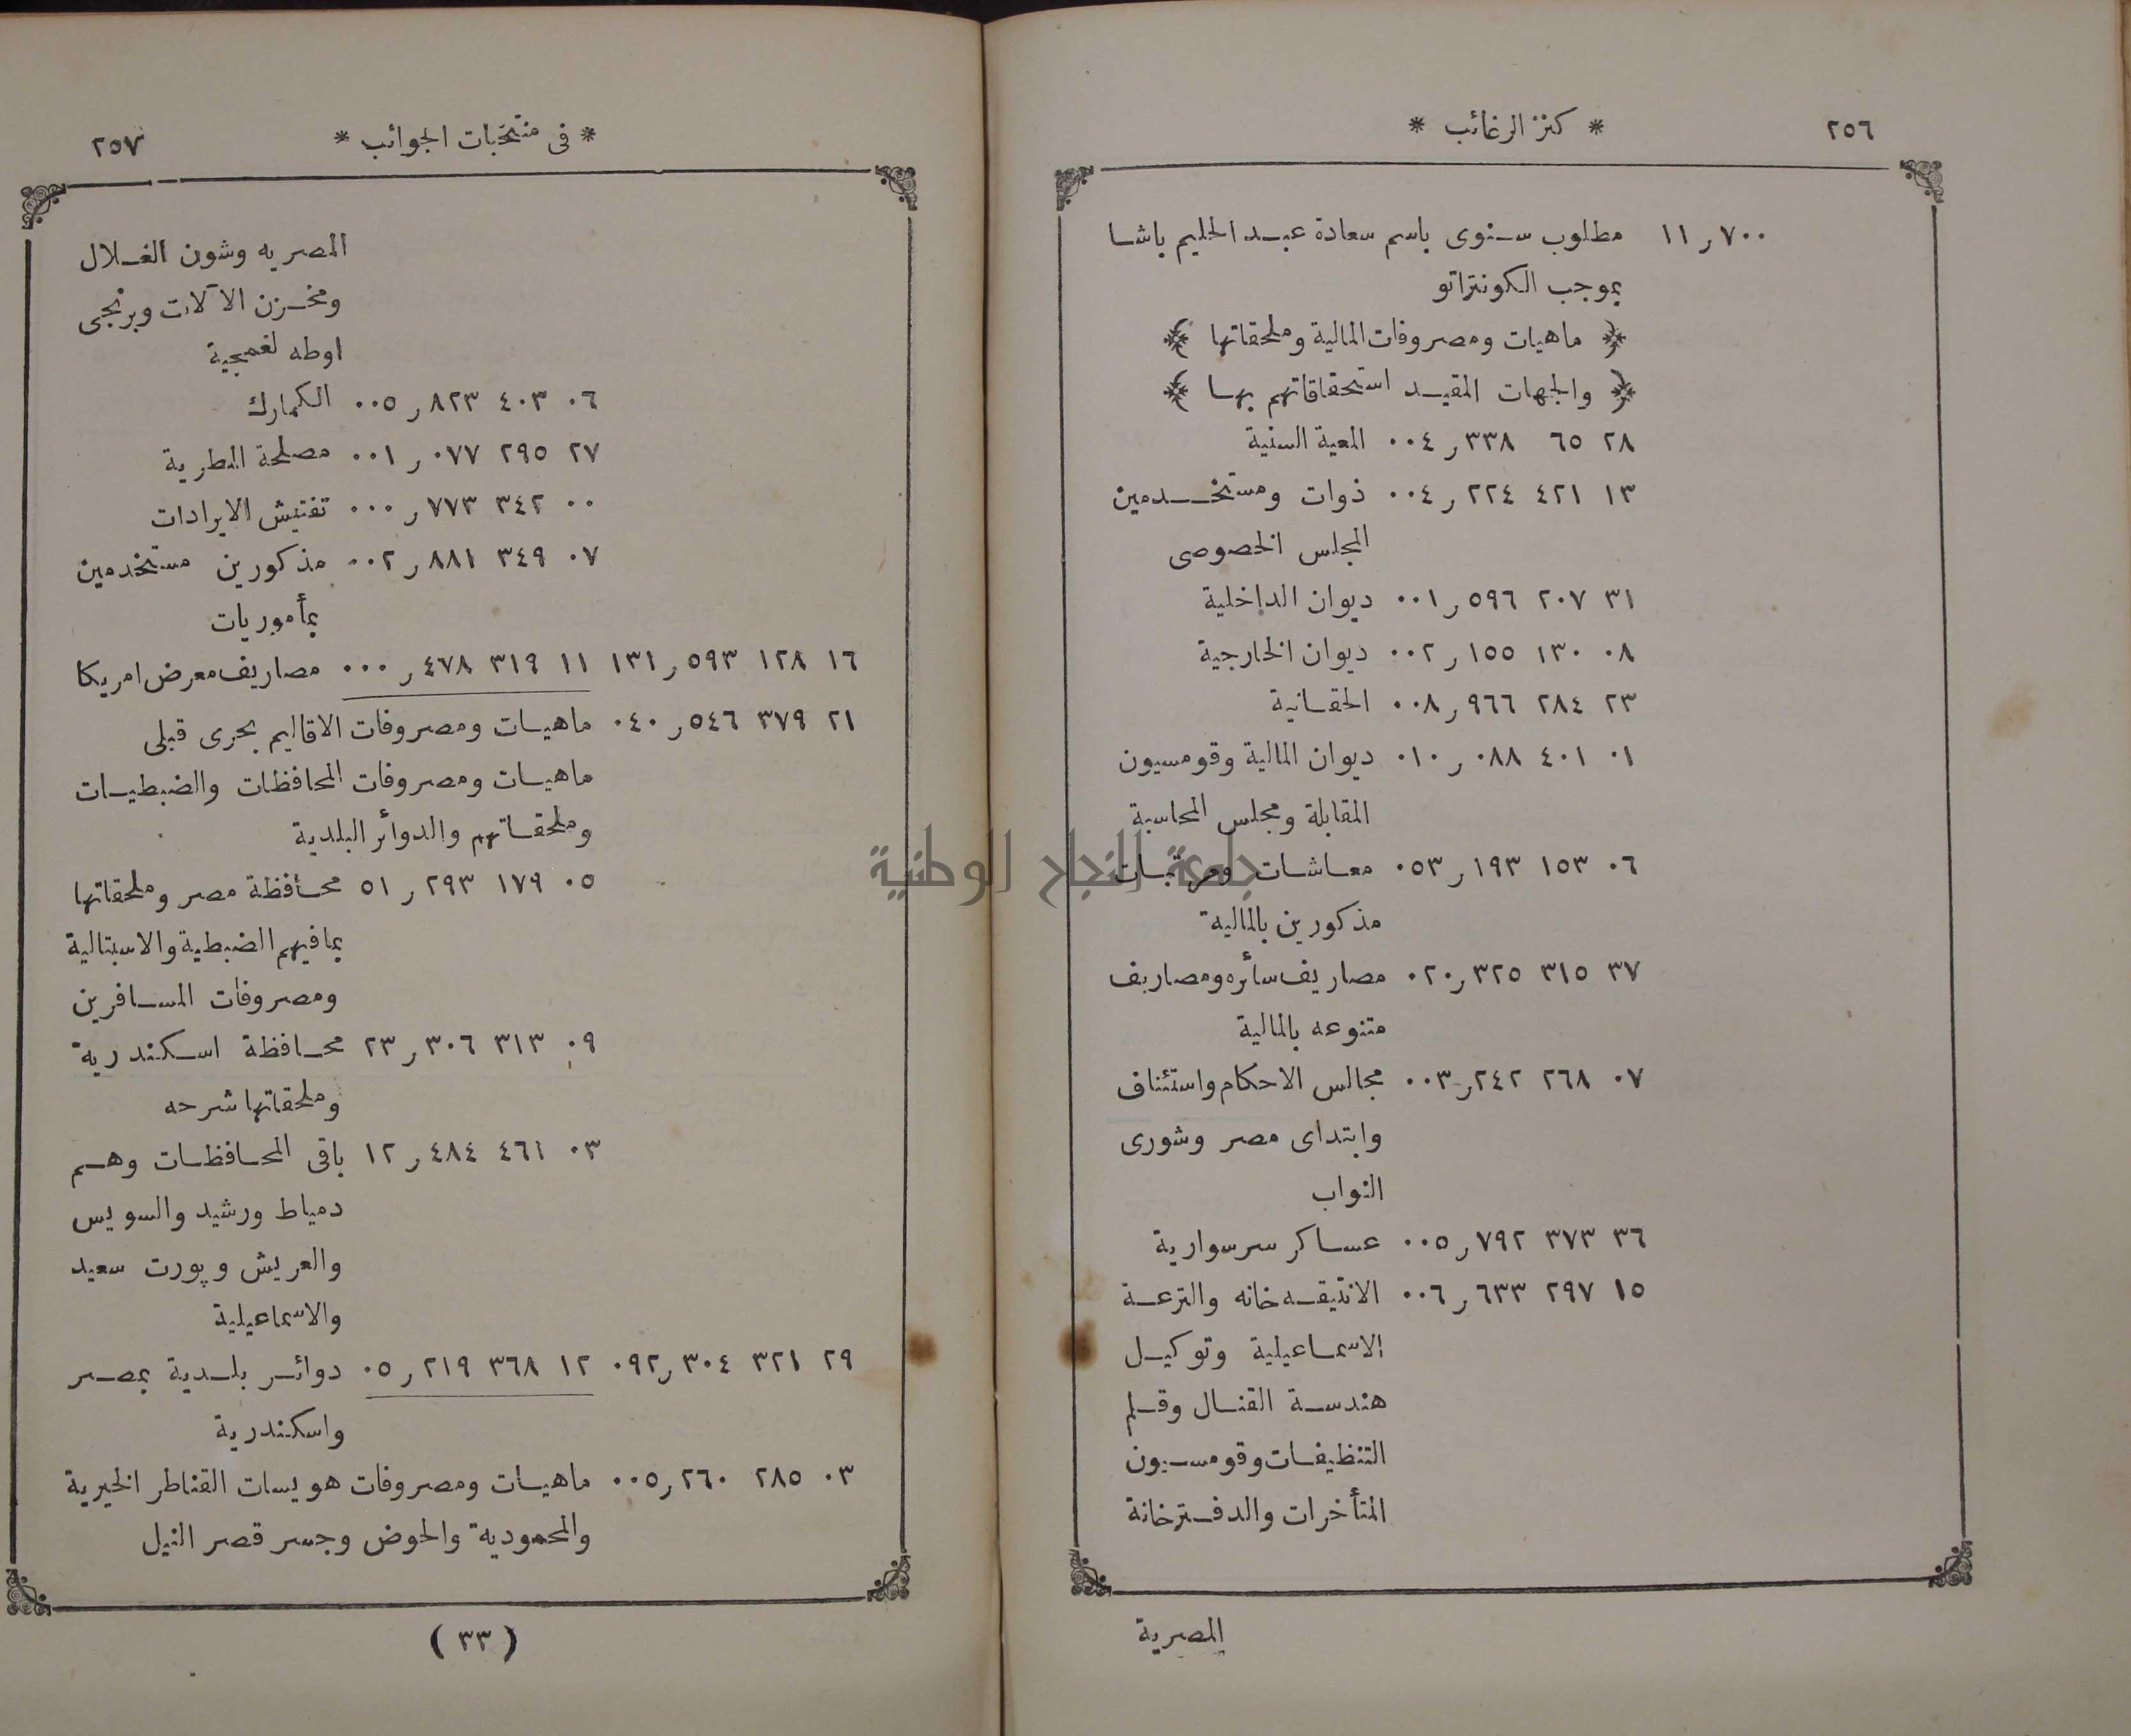 ٢٥٦
* كنز الرغائب *
١١٫٧٠٠ مطلوب سنوى باسم سعادة عبد الحليم باشا
بموجب الكونتراتو
﴿ ماهيات ومصروفات المالية وملحقاتها ﴾
﴿ والجهات المقيد استحقاقاتهم بها ﴾
٢٨ ٦٥ ٠٠٤٫٣٣٨ المعية السنية
١٣ ٤٢١ ٠٠٤٫٢٢٤ ذوات ومستخدمين
المجلس الخصوصى
٣١ ٢٠٧ ٠٠١٫٥٩٦ ديوان الداخلية
٠٨ ١٣٠ ٠٠٢٫١٥٥ ديوان الخارجية
٢٣ ٢٨٤ ٠٠٨٫٩٦٦ الحقانية
٠١ ٤٠١ ٠١٠٫٠٨٨ ديوان المالية وقومسيون
المقابلة ومجلس المحاسبة
٠٦ ١٥٣ ٠٥٣٫١٩٣ معاشات ومرتبات
مذكورين بالمالية
٣٧ ٣١٥ ٠٢٠٫٣٢٥ مصاريف سائره ومصاريف
متنوعه بالمالية
٠٧ ٢٦٨ ٠٠٣٫٢٤٢ مجالس الاحكام واستئناف
وابتداى مصر وشورى
النواب
٣٦ ٣٧٣ ٠٠٥٫٧٩٢ عساكر سرسوارية
١٥ ٢٩٧ ٠٠٦٫٦٣٣ الانتيقه خانه والترعة
الاسماعيلية وتوكيل
هندسة القنال وقلم
التنظيفات وقومسيون
المتأخرات والدفترخانة
المصرية
* فى منتخبات الجوائب *
٢٥٧
المصريه وشون الغلال
ومخزن الآلات وبرنجى
اوطه لغمجية
٠٦ ٤٠٣ ٠٠٥٫٨٢٣ الكمارك
٢٧ ٢٩٥ ٠٠١٫٠٧٧ مصلحة المطرية
٠٠ ٣٤٢ ٠٠٠٫٧٧٣ تفتيش الايرادات
٠٧ ٣٤٩ ٠٠٢٫٨٨١ مذكورين مستخدمين
بمأموريات
١٦ ١٢٨ ١٣١٫٥٩٣ ١١ ٣١٩ ٠٠٠٫٤٧٨ مصاريف معرض امريكا
٢١ ٣٧٩ ٠٤٠٫٥٤٦ ماهيات ومصروفات الاقاليم بحرى قبلى
ماهيات ومصروفات المحافظات والضبطيات
وملحقاتهم والدوائر البلدية
٠٥ ١٧٩ ٥١٫٢٩٣ محافظة مصر وملحقاتها
بمافيهم الضبطية والاسبتالية
ومصروفات المسافرين
٠٩ ٣١٣ ٢٣٫٣٠٦ محافظة اسكندرية
وملحقاتها شرحه
٠٣ ٤٦١ ١٢٫٤٨٤ باقى المحافظات وهم
دمياط ورشيد والسويس
والعريش وپورت سعيد
والاسماعيلية
٢٩ ٣٢١ ٠٩٢٫٣٠٤ ١٢ ٣٦٨ ٠٥٫٢١٩ دوائر بلدية بمصر
واسكندرية
٠٣ ٢٨٥ ٠٠٥٫٢٦٠ ماهيات ومصروفات هويسات القناطر الخيرية
والمحمودية والحوض وجسر قصر النيل
( ٣٣ )
جامعة النجاح الوطنية